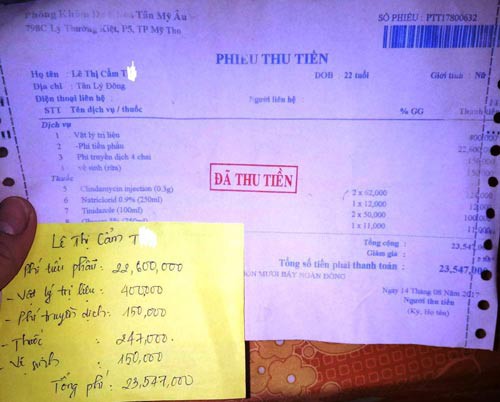 Phòng Khám Đa Khoa Tân Mỹ Âu
79BC Lý Thường Kiệt, P5, TP Mỹ Tho
SỐ PHIẾU : PTT17800632
PHIẾU THU TIỀN
Họ tên : Lê Thị Cẩm T DOB : 22 tuổi Giới tính : Nữ
Địa chỉ : Tân Lý Đông
Điện thoại liên hệ Người liên hệ :
STT Tên dịch vụ / thuốc % GG Thành
Dịch vụ
1 Vật lý trị liệu 400,000
2 -Phí tiểu phẫu 22,600,0
3 Phí truyền dịch 4 chai 150,0
vệ sinh (rửa)
Thuốc
5 Clindamycin injection (0.3g) 2 x 62,000
6 Natriclorid 0.9% (250ml) 1 x 12,000
7 Tinidazole (100ml) 2 x 50,000
8 (250ml) 1 x 11,000
ĐÃ THU TIỀN
Tổng cộng : 23,547
Giảm giá :
Tổng số tiền phải thanh toán : 23,547,00
MƯƠI BẢY NGÀN ĐỒNG
Ngày 14 Tháng 08 Năm 2017
Người thu tiền
(Ký, Họ tên)
Lê Thị Cẩm T
Phí tiểu phẫu : 22,600,000
- Vật lý trị liệu : 400,000
- Phí truyền dịch : 150,000
- Thuốc : 247,000
- Vệ sinh : 150,000
Tổng phí : 23,547,000